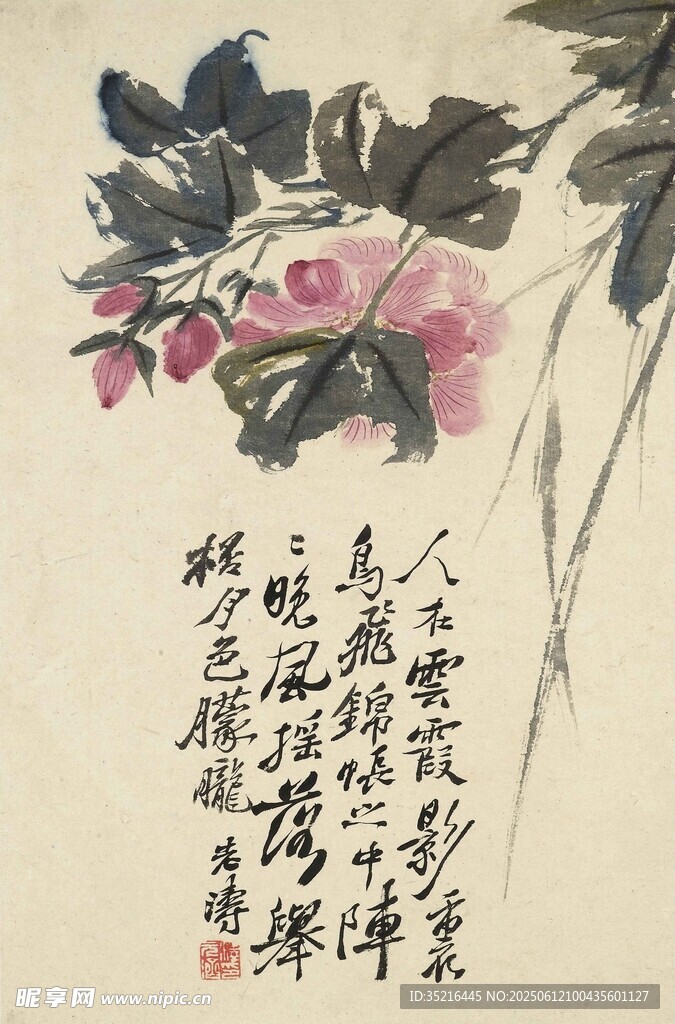 人在雲霞影裏
鳥飛錦帳之中陣
々晚風搖落舉
桮夕色朦朧
老濤
昵享网 www.nipic.cn
ID:35216445 NO:20250612100435601127